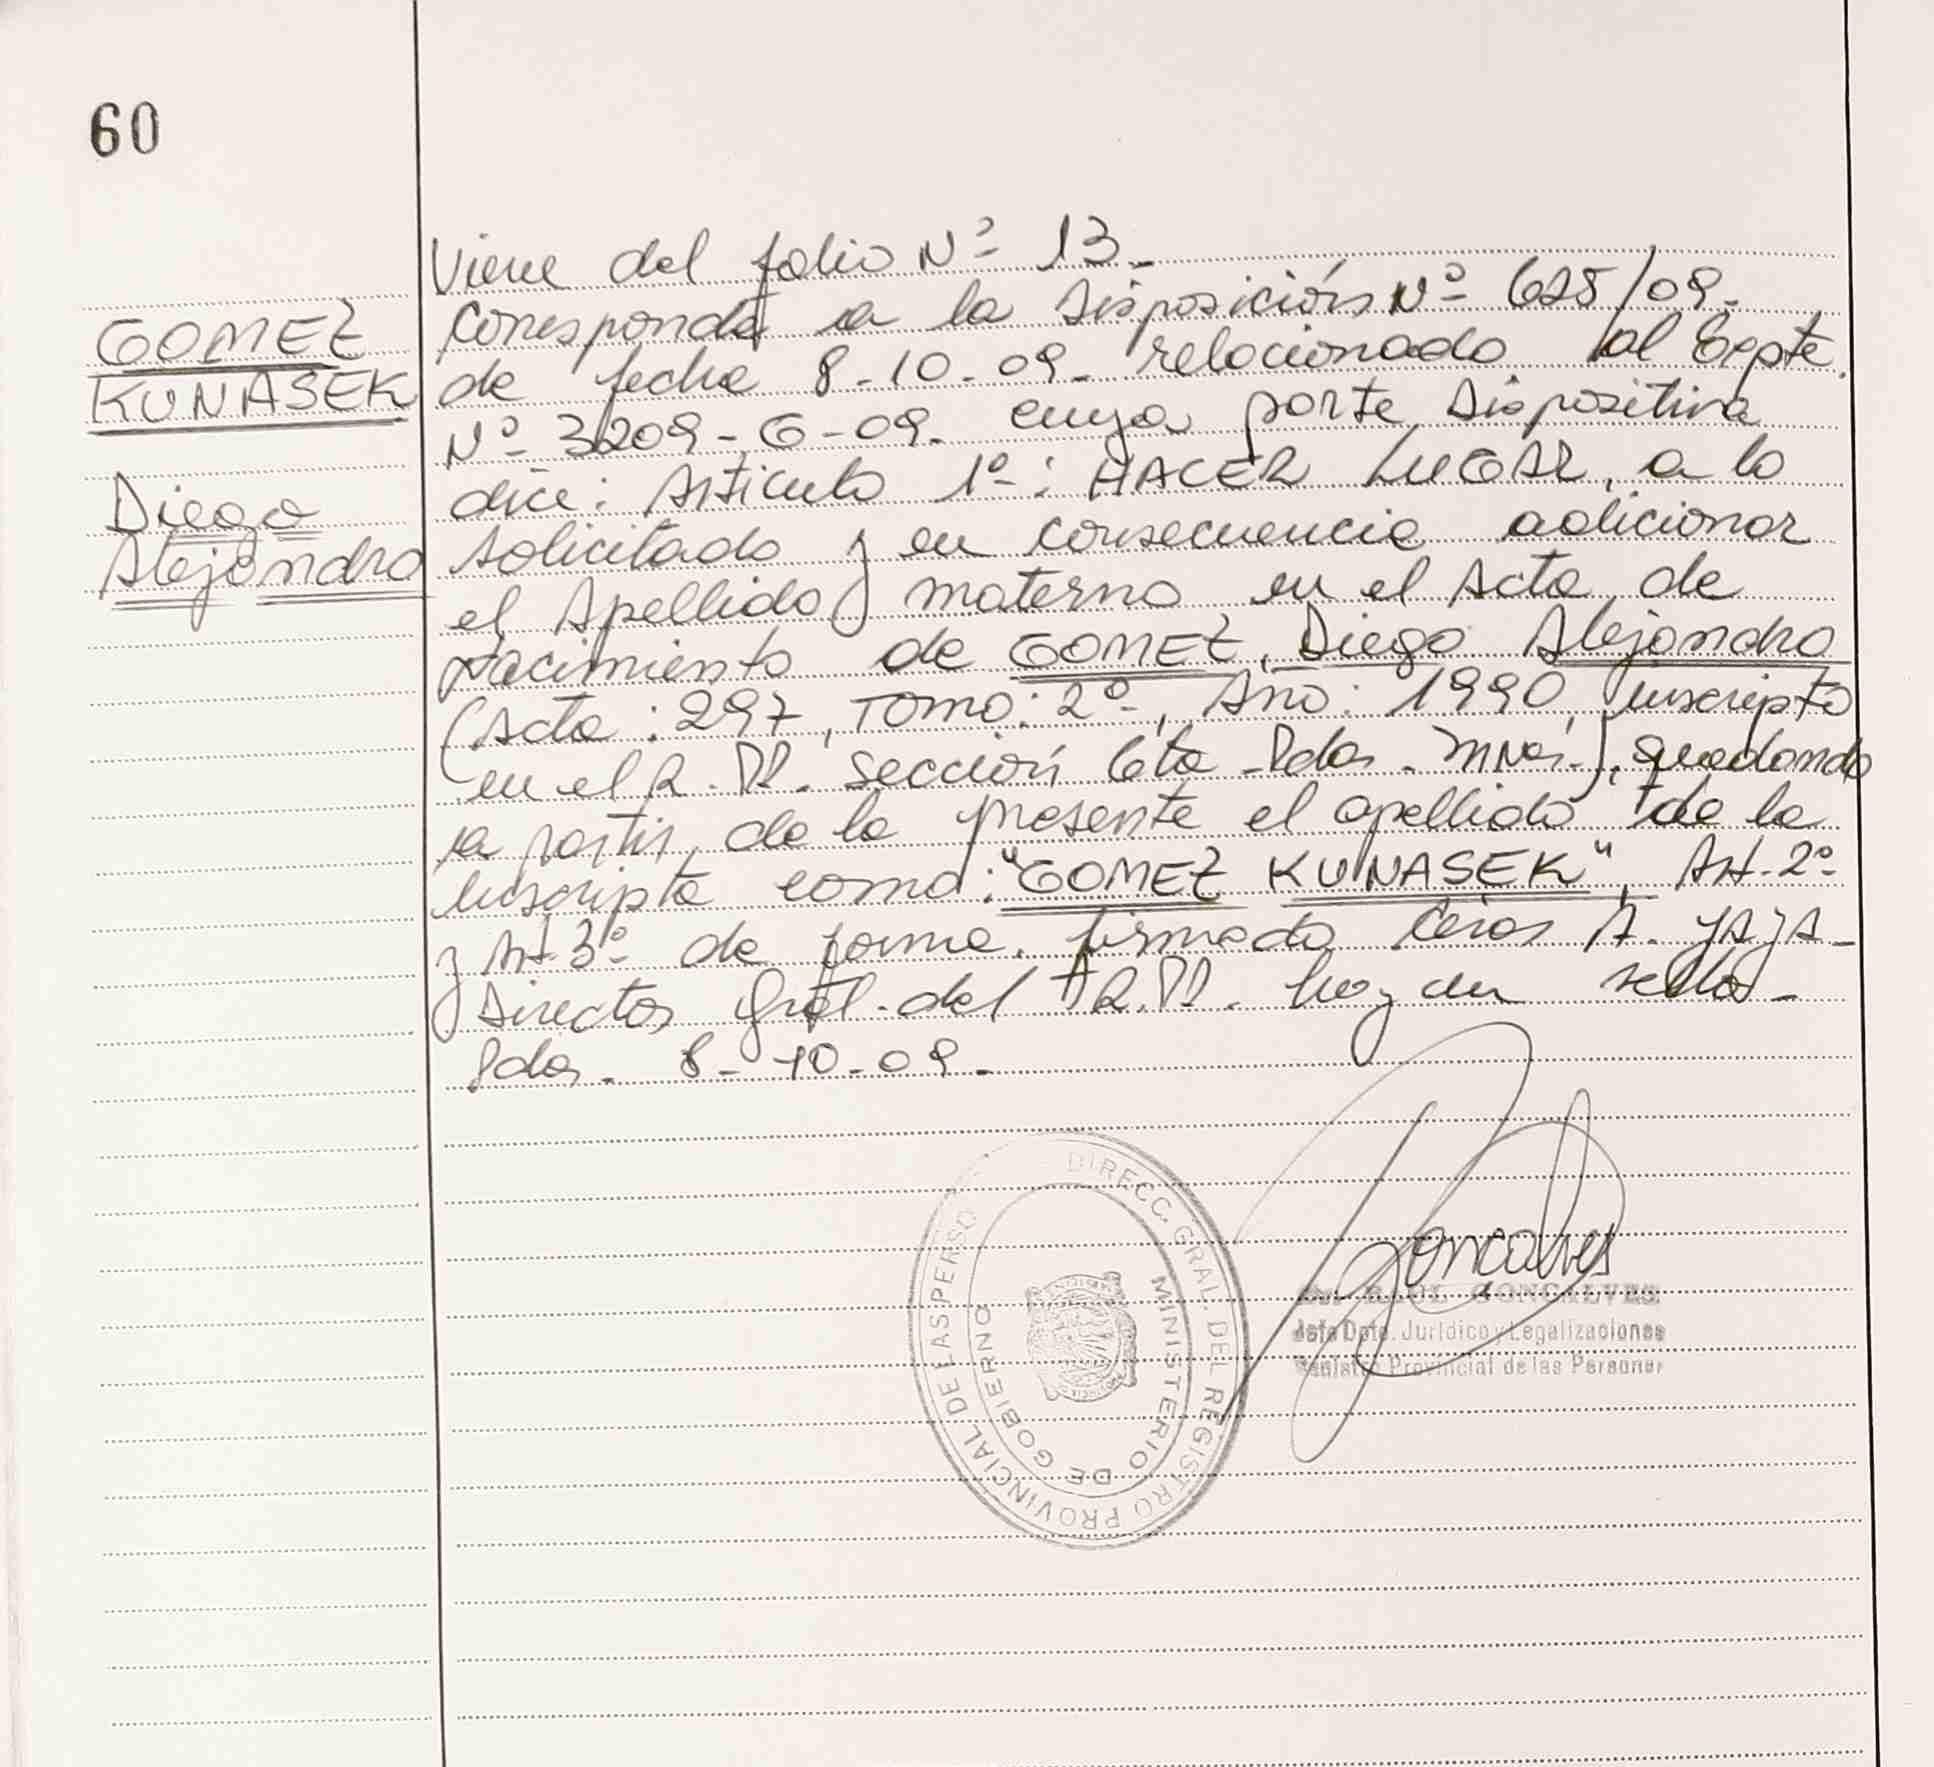 60
GOMEZ
KUNASEK
Diego
Alejandro
Viene del folio Nº 13_
Corresponde a la Disposición Nº 625/09_
de fecha 8-10-09_ relacionado al Expte.
Nº 3209-G-09_ cuya parte Dispositiva
dice: Articulo 1º: HACER LUGAR, a lo
solicitado y en consecuencia adicionar
el Apellido materno en el Acta de
Nacimiento de GOMEZ, Diego Alejandro
(Acta: 297, Tomo: 2º, Año: 1990, inscripto
en el R.P. sección 6ta Pdas. Mnes.), quedando
a partir de la presente el apellido de la
inscripta como: "GOMEZ KUNASEK", Art. 2º
y Art 3º de forma. firmado A. YAYA_
Director Gral. del R.P. hay un sello_
Pdas. 8-10-09_
DIRECC. GRAL. DEL REGISTRO PROVINCIAL DE LAS PERSO
MINISTERIO DE GOBIERNO
Goncalves
RAUL GONCALVES
Jefe Dpto. Jurídico y Legalizaciones
Registro Provincial de las Personas